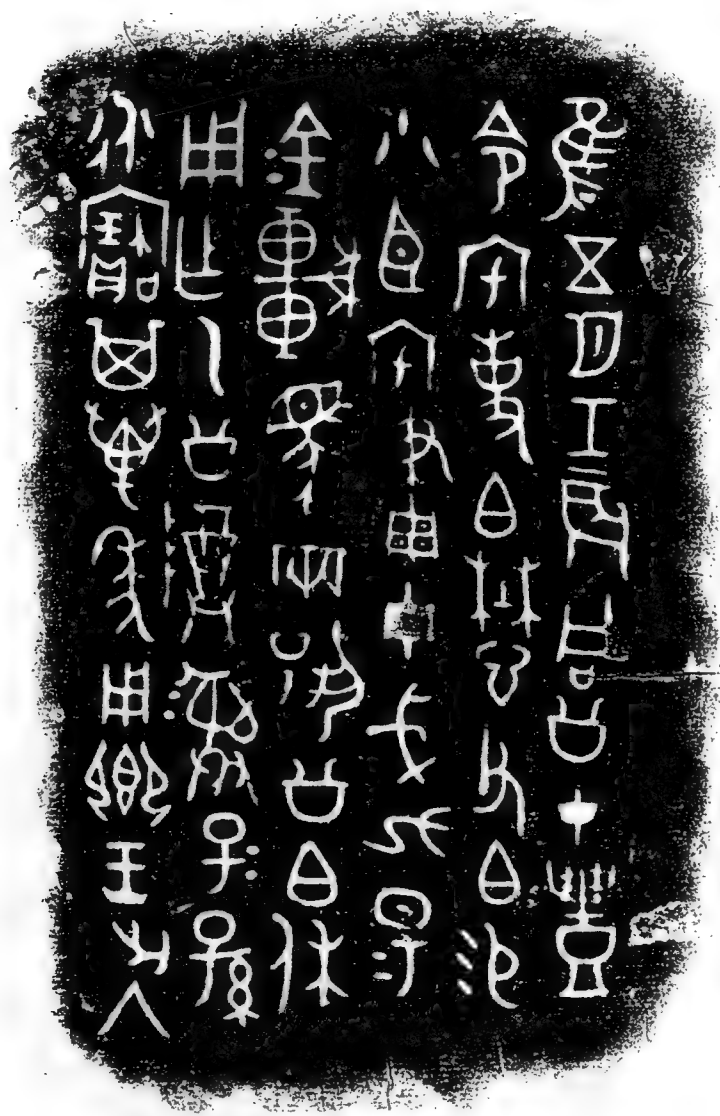 隹五月壬辰同公才豐
令宅事白懋父白易
小臣宅畫毌戈九易
金車馬兩揚公白休
用乍乙公尊彝子＝孫
永寶其萬年用鄉王出入